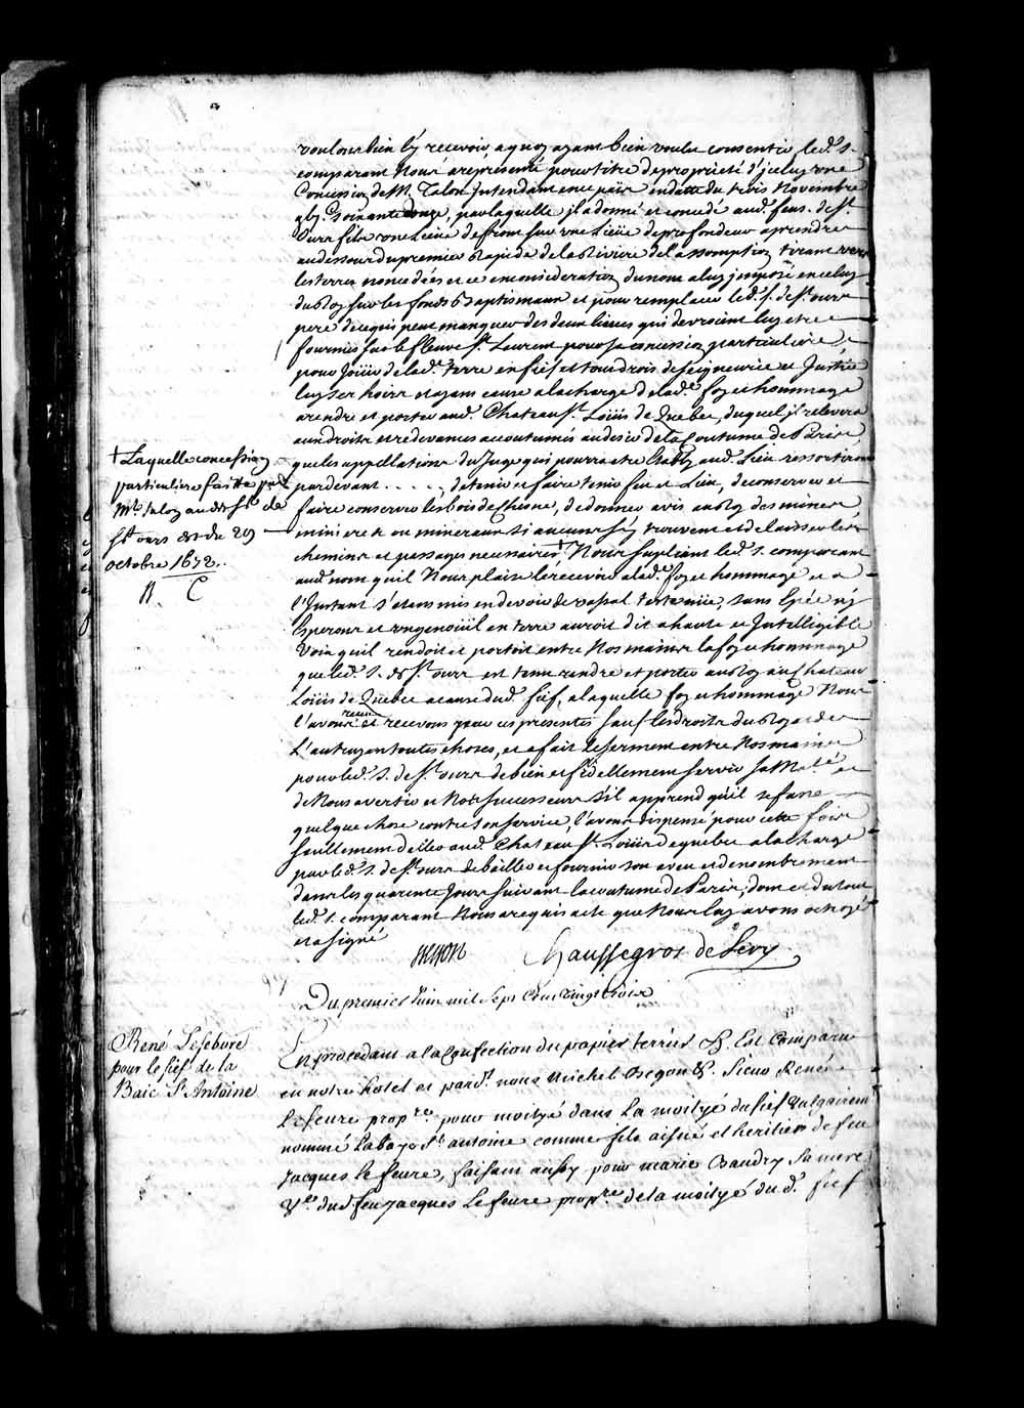 vouloir bien l'y recevoir, a quoy ayant bien voulu consentir led. s.
comparant Nous a representé pour titre de proprieté d'jceluy une
Concession de M. Talon Jntendant en ce païs en datte du trois Novembre
gbj.c soixante douze, par laquelle jl a donné et concedé aud. feu s. de St.
Ours fils une Lieüe de front sur une Lieüe de profondeur a prendre
au dessous du premier Rapide de la Riviere de l'assomption tirant vers
les terres non cedées et ce en consideration du nom a luy jmposé en celuy
du Roy sur les fonds Baptismaux et pour remplacer led. s. de St. ours
pere de ce qui peut manquer des deux lieues qui devroient luy etre
fournies sur le fleuve St. Laurent pour sa concession particuliere
pour joüir de lad.e terre en fief et tous droits de seigneurie et Justice
luy ses hoirs et ayans cause a la charge de lad.e foy et hommage
a rendre et porter aud. Chateau St. Loüis de Quebec, duquel jl relevera
aux droits et redevances accoutumés au desir de la Coutume de Paris,
que les appellations du Juge qui pourra etre Etably aud. Lieu ressortiront
pardevant . . . . , de tenir et faire tenir feu et Lieu, de conserver et
faire conserver les bois de Chesne, de donner avis au Roy des mines
minieres ou mineraux si aucuns s'y trouvent et de laisser les
chemins et passages necessaires + Nous supliant led. s. comparant
aud. nom qu'il Nous plaise le recevoir a lad.e foy et hommage et a
l'Jnstant s'etant mis en devoir de vassal teste nüe, sans Epée ny
Esperons et un genoüil en terre auroit dit a haute et Jntelligible
Voix qu'il rendoit et portoit entre Nos mains la foy et hommage
que led. s. de St. ours est tenu rendre et porter au Roy au Chateau
Loüis de Quebec a cause dud. fief, a laquelle foy et hommage Nous
l'avons receu et recevons par ces presentes sauf les droits du Roy et de
L'autruy en toutes choses, et a fait le serment entre Nos mains
pour led. s. de St. ours de bien et fidellement servir sa Ma.té et
de Nous avertir et Nos successeurs s'il apprend qu'il se fasse
quelque chose contre son service, l'avons dispensé pour cette fois
seullement d'aller aud. Chateau St. Loüis de quebec a la charge
par led. s. de St. ours de bailler et fournir son aveu et denombrement
dans les quarente Jours suivant la coutume de Paris, dont et du tout
led. s. comparant Nous a requis acte que Nous luy avons octroyé
et a signé
Begon Chaussegros de Lery
+ Laquelle concession
particuliere faitte par
Mr. talon aud. Sr. de
St. ours est du 29
octobre 1672.
B. C
Du premier Juin mil sept Cens vingt trois
René Lefebvre
pour le fief de la
Baie St. Antoine
En procedant a la Confection du papier terrier &. Est Comparu
en notre hotel et pard.t nous Michel Begon &. Sieur René
Lefevre prop.re pour moityé dans la moityé du fief vulgairem.
nommé La baye St. antoine comme fils aisné et heritier de feu
Jacques lefevre, faisant aussy pour marie Baudry sa mere
V.e dud. feu Jacques Lefevre prop.re de la moityé dud. fief